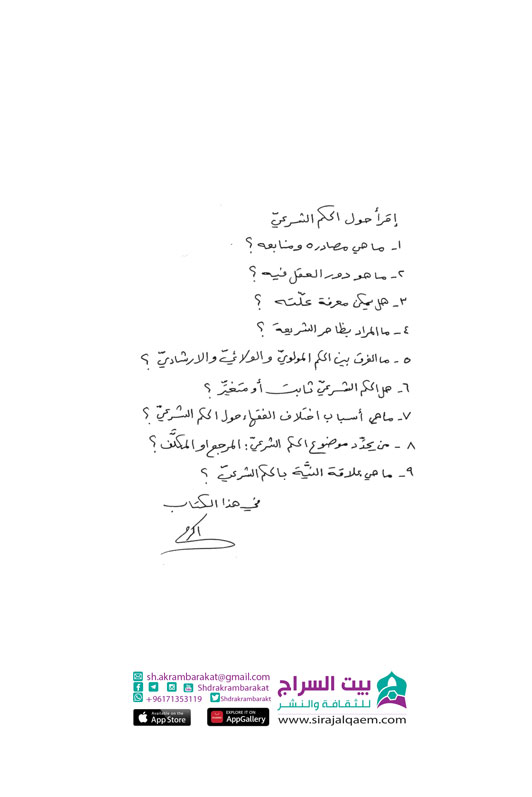 إقرأ حول الحكم الشرعيّ
١- ما هي مصادره ومنابعه؟
٢- ما هو دور العقل فيه؟
٣- هل يمكن معرفة علّته؟
٤- ما المراد بظاهر الشريعة؟
٥- ما الفرق بين الحكم المولويّ والولائيّ والارشاديّ؟
٦- هل الحكم الشرعيّ ثابت أو متغيّر؟
٧- ما هي أسباب اختلاف الفقهاء حول الحكم الشرعيّ؟
٨- من يحدّد موضوع الحكم الشرعيّ: المرجع او المكلَّف؟
٩- ما هي علاقة النيَّة بالحكم الشرعيّ؟
في هذا الكتاب
اكرم
sh.akrambarakat@gmail.com
Shdrakrambarakat
+96171353119 Shdrakrambarakt
Available on the App Store
EXPLORE IT ON AppGallery
بيت السراج
للثقافة والنشر
www.sirajalqaem.com